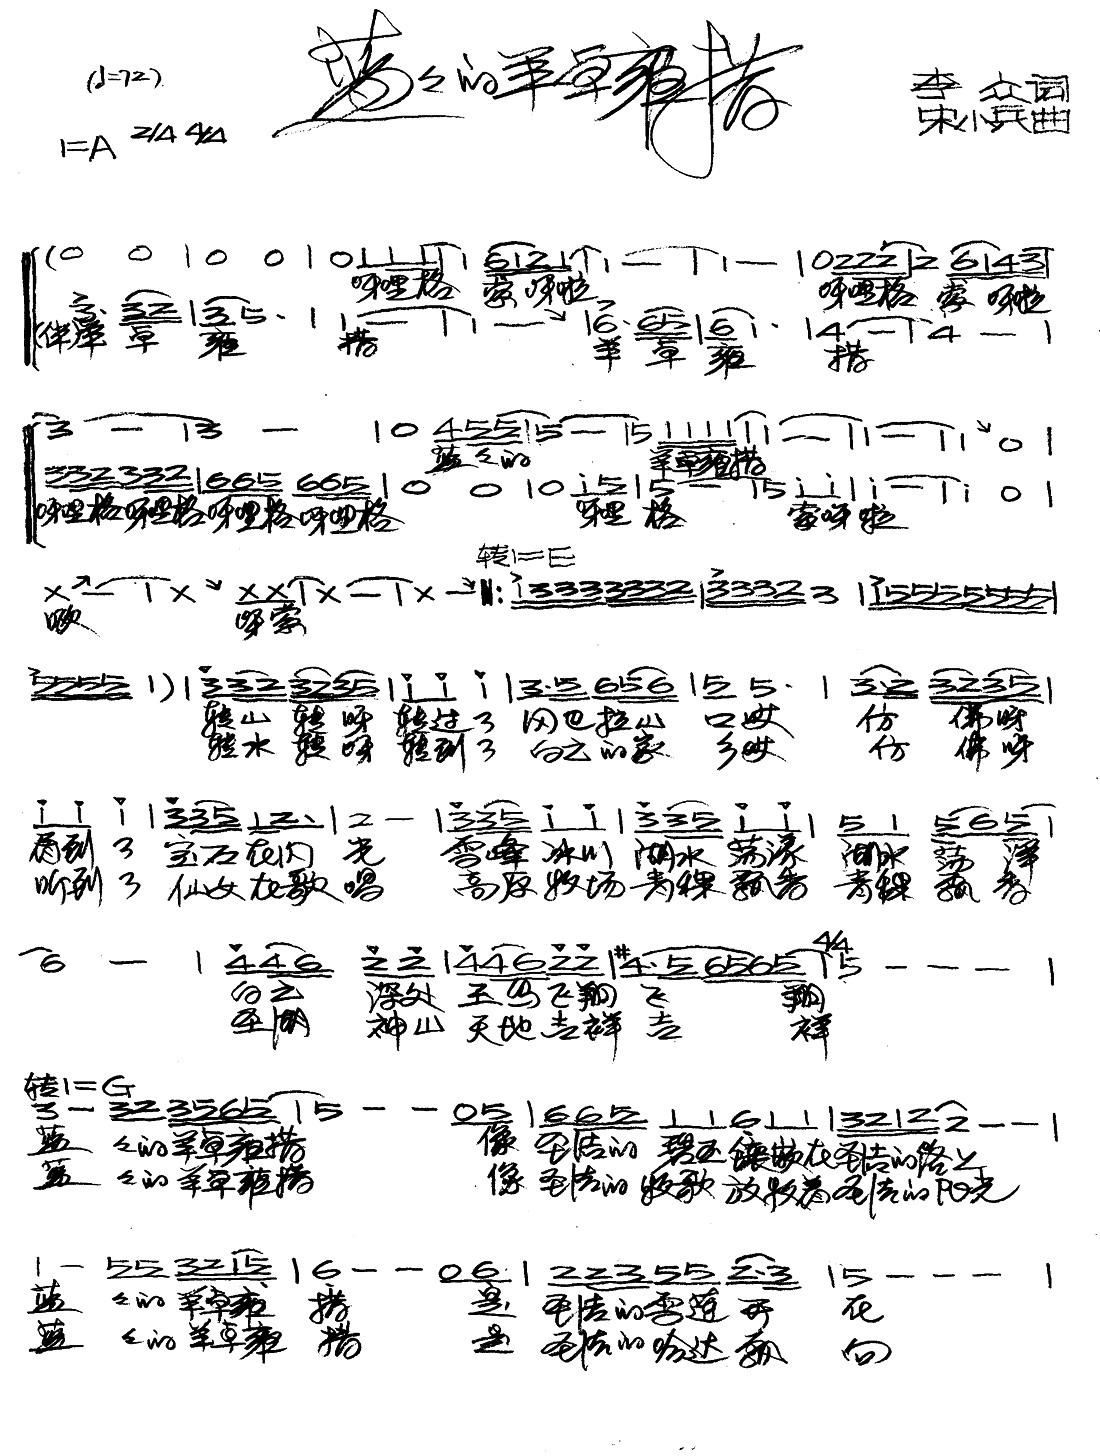 蓝々的羊卓雍措
(♩=72)
1=A 2/4 4/4
李众词
宋小兵曲
(0 0 | 0 0 | 0 1 1 1 1 | 6 1 2 1 1 | 1 — | 1 — | 0 2 2 2 | 2 6 1 4 3 |
呀哩格 索呀啦 呀哩格 索呀啦
3· 3 2 | 3 5 · | 1 — | 1 — | 6· 6 5 | 6 1 · | 4 — | 4 — |
伴 羊 卓 雍 措 羊 卓 雍 措
3 — | 3 — | 0 4 5 5 | 5 — | 5 1 1 1 1 | 1 — | 1 — | 1 0 |
蓝々的 羊卓雍措
3 3 2 3 3 2 | 6 6 5 6 6 5 | 0 0 | 0 i 5 | 5 — | 5 i i | i — | i 0 |
呀哩格呀哩格呀哩格呀哩格 呀哩 格 索呀啦
转1=E
x — | x x x | x — | x — ‖: i 3 3 3 3 3 2 2 | 3 3 3 2 3 | i 5 5 5 5 5 5 5 |
呀索
5 5 5 5 1 ) | 3 3 2 3 2 3 5 | i i i | 3· 5 6 5 6 | 5 5 · | 3· 2 3 2 3 5 |
转山 转呀 转过了 冈巴拉山 口哎 仿 佛呀
转水 转呀 转到了 白云的家 乡哎 仿 佛呀
i i i | 3 3 5 1 2 · | 2 — | 3 3 5 i i | 3 3 5 i i | 5 1 5 6 5 |
看到了 宝石在闪 光 雪峰 冰川 湖水 荡漾 湖水 荡 漾
听到了 仙女在歌 唱 高原 牧场 青稞 飘香 青稞 飘 香
6 — | 4 4 6 2 2 | 4 4 6 2 2 | #4· 5 6 5 6 5 | 4/4 5 — — — |
白云 深处 玉鸟飞翔 飞 翔
圣湖 神山 天地吉祥 吉 祥
转1=G
3 — 3 2 3 5 6 5 | 5 — — 0 5 | 6 6 5 1 1 6 1 1 | 3 2 1 2 2 — — |
蓝 々的羊卓雍措 像 圣洁的 碧玉 镶嵌在圣洁的路上
蓝 々的羊卓雍措 像 圣洁的 牧歌 放牧着圣洁的阳光
1 — 5 5 3 2 1 5 | 6 — — 0 6 | 2 2 3 5 5 2· 3 | 5 — — — |
蓝 々的 羊卓雍 措 是 圣洁的雪莲 开 花
蓝 々的 羊卓雍 措 是 圣洁的哈达 飘 向